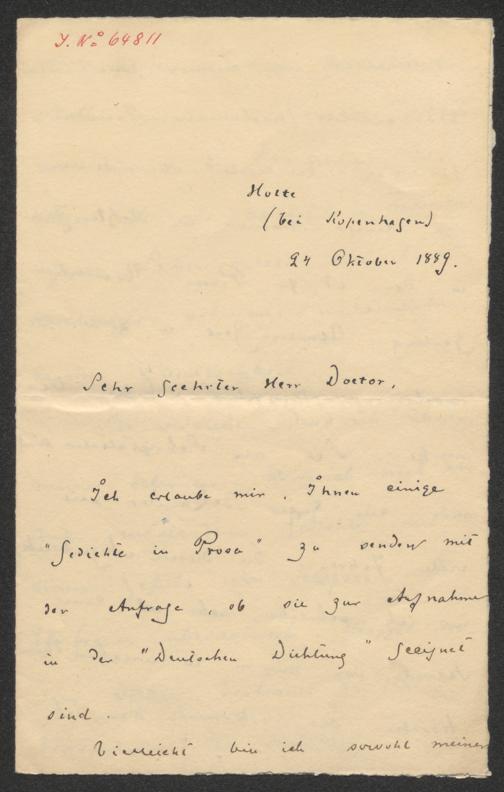 J. No 64811
Holte
(bei Kopenhagen)
24 Oktober 1889.
Sehr geehrter Herr Doctor,
Ich erlaube mir, Ihnen einige
"Gedichte in Prosa" zu senden mit
der Anfrage, ob sie zur Aufnahme
in der "Deutschen Dichtung" geeignet
sind.
Vielleicht bin ich sowohl meiner